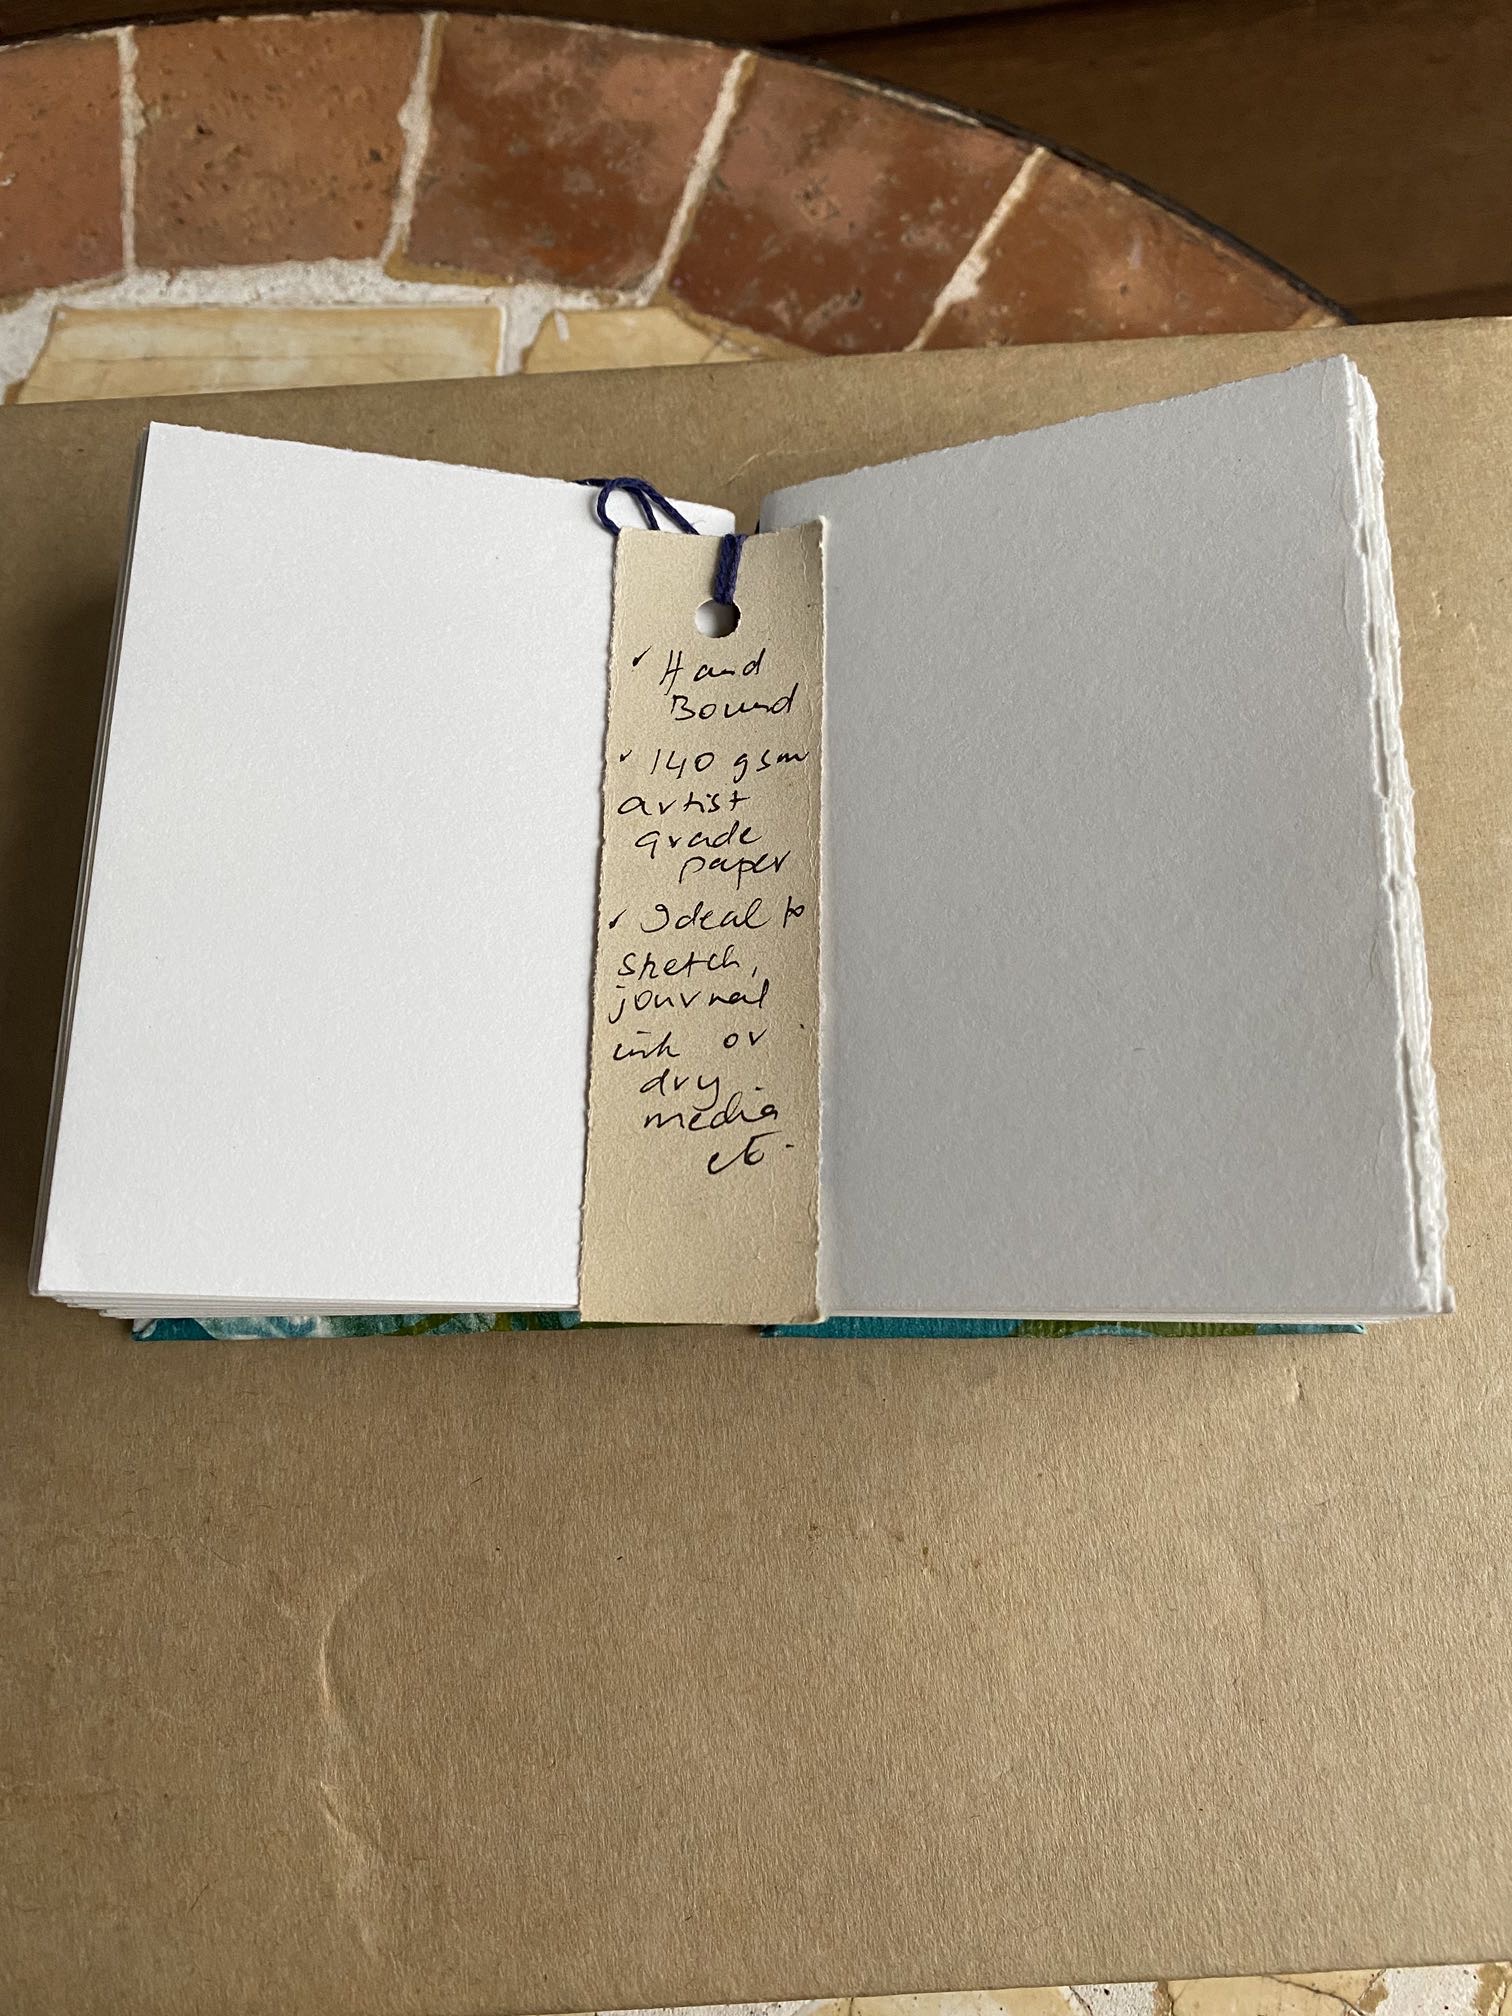 ✓ Hand
Bound
✓ 140 gsm
artist
grade
paper
✓ Ideal to
sketch,
journal
ink or
dry
media
etc.